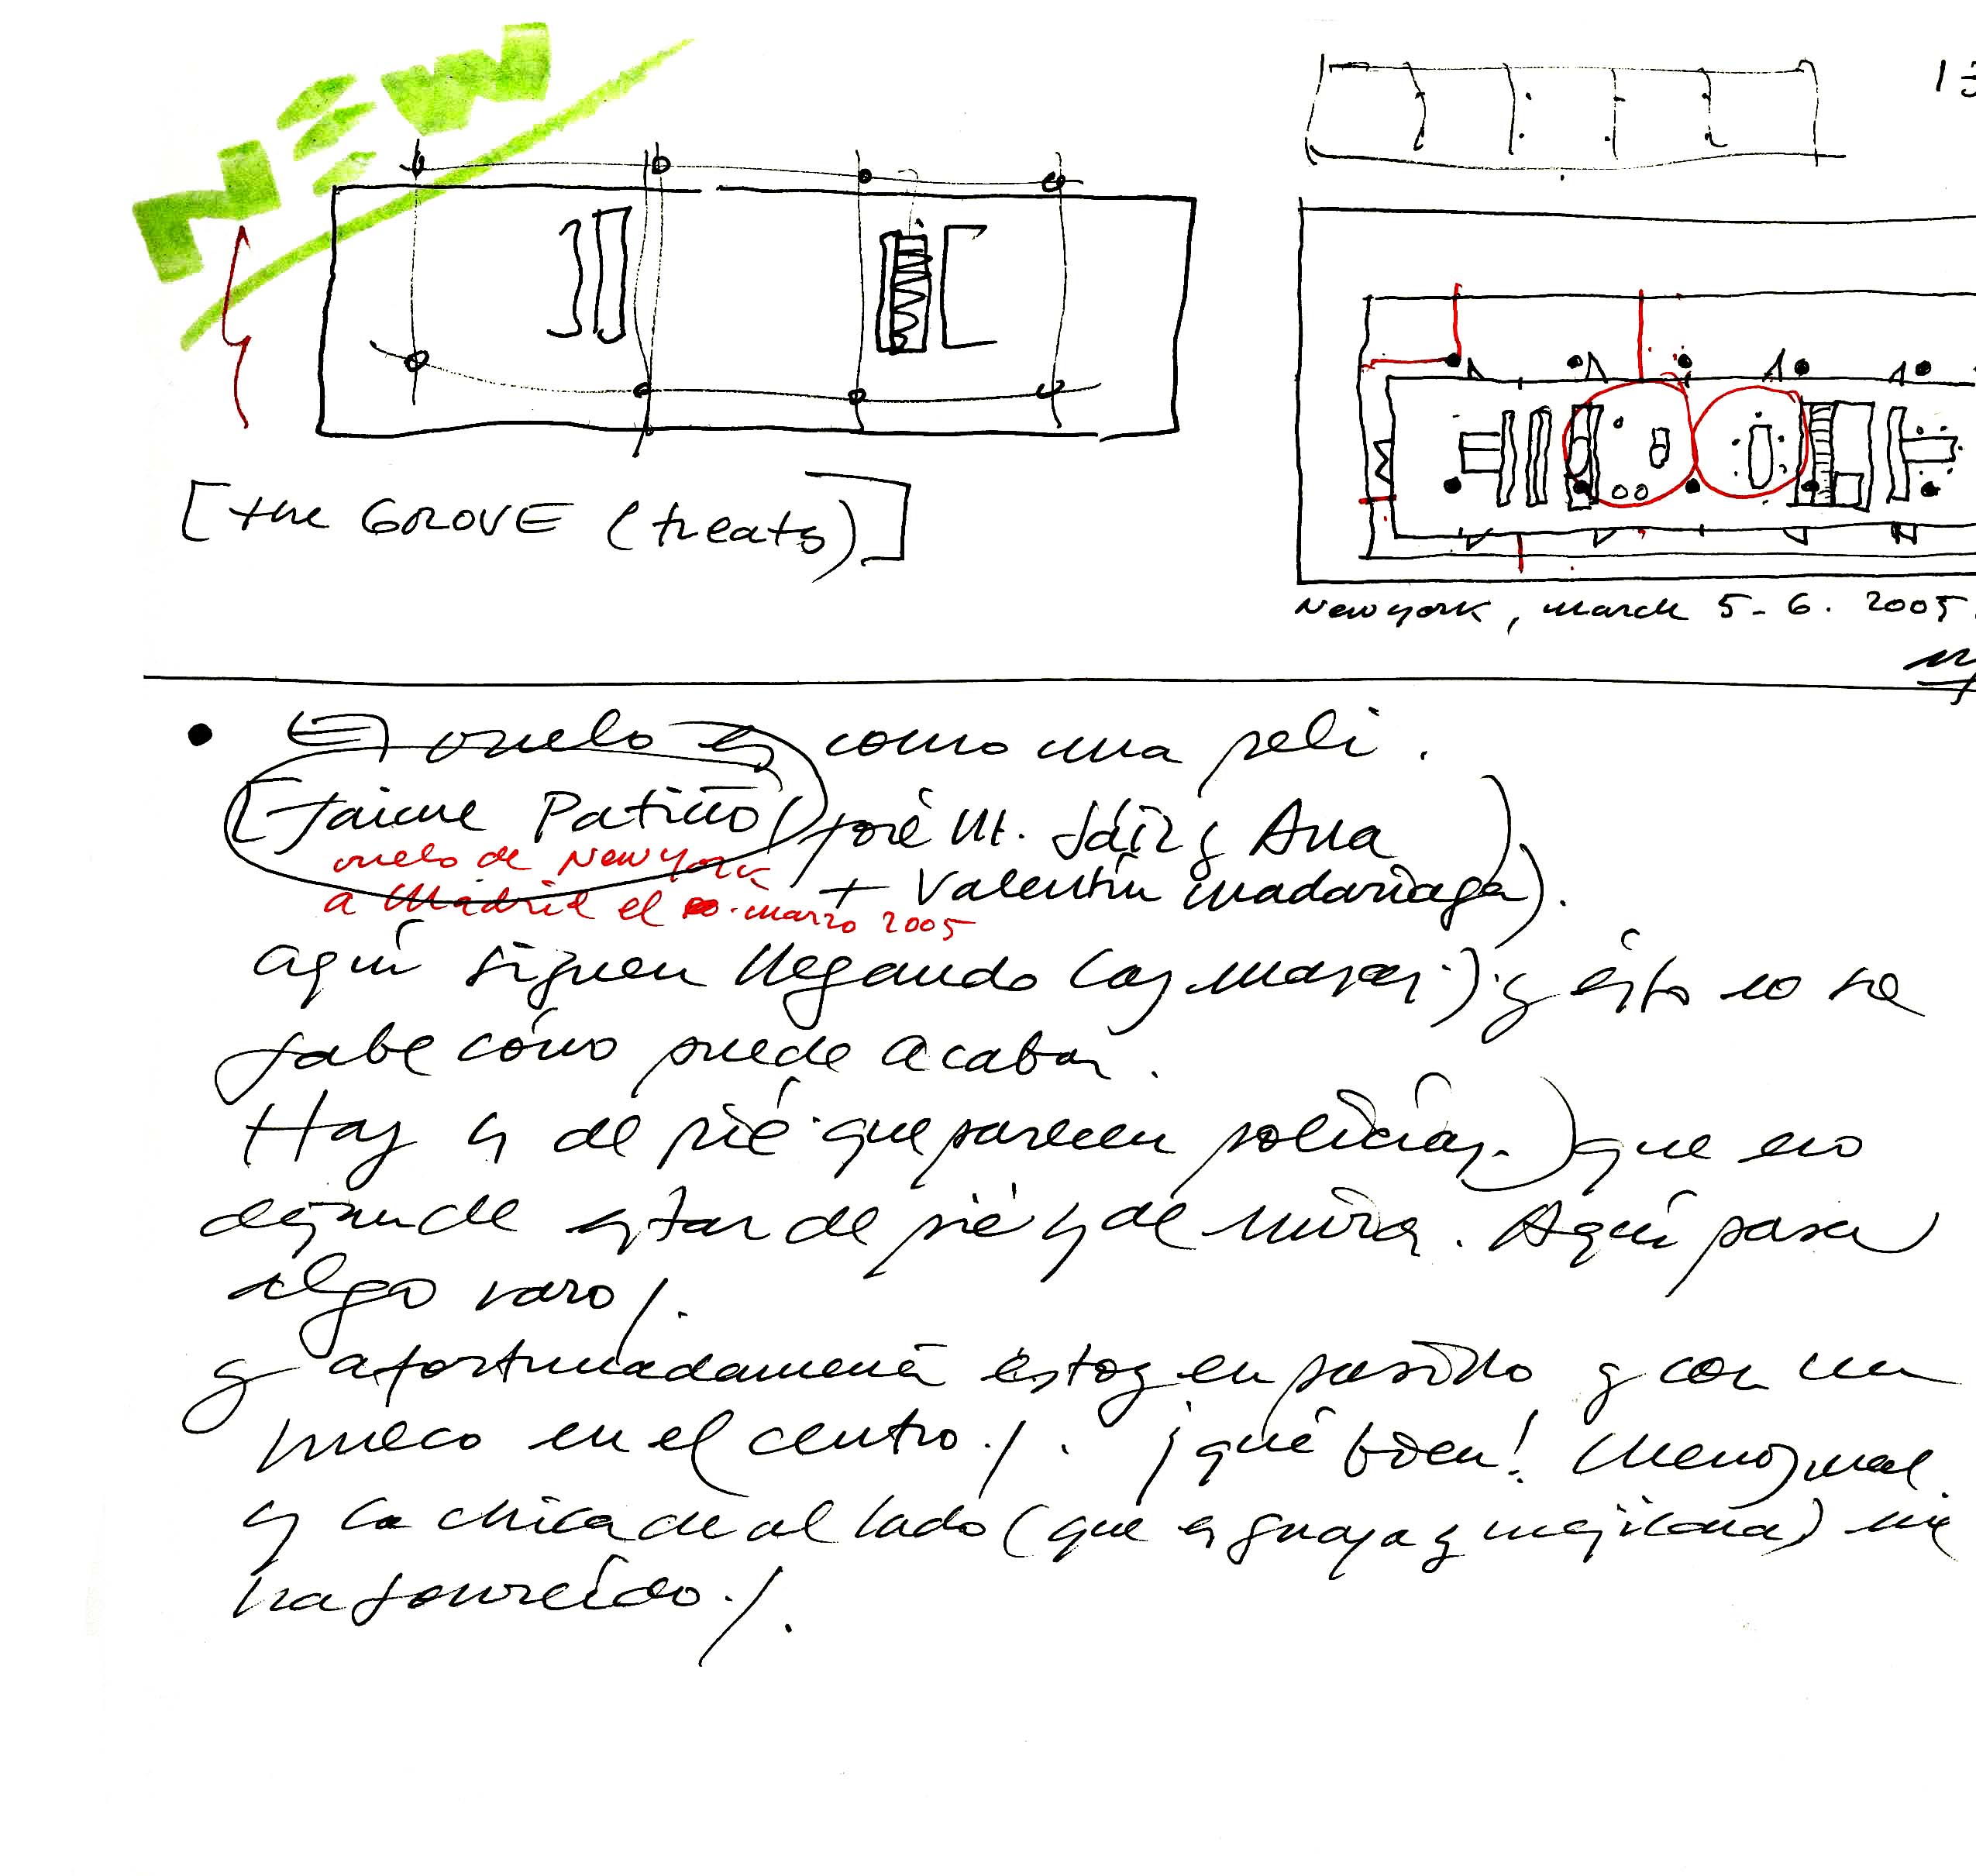 NEW
13
[the GROVE (treats)]
New york, march 5-6. 2005.
• El vuelo es como una peli.
[Jaime Patiño, José M. Sáiz y Ana
+ Valentín Madariaga).
vuelo de New York
a Madrid el marzo 2005
aquí siguen llegando las masas.) y ésto no se
sabe cómo puede acabar.
Hay 4 de pié que parecen policías.) que no
dejan de estar de pié y de mirar. Aquí pasa
algo raro/.
y afortunadamente estoy en pasillo y con un
hueco en el centro./. ¡qué bien! Menos mal.
y la chica de al lado (que es guapa y mejicana) me
ha sonreído./.